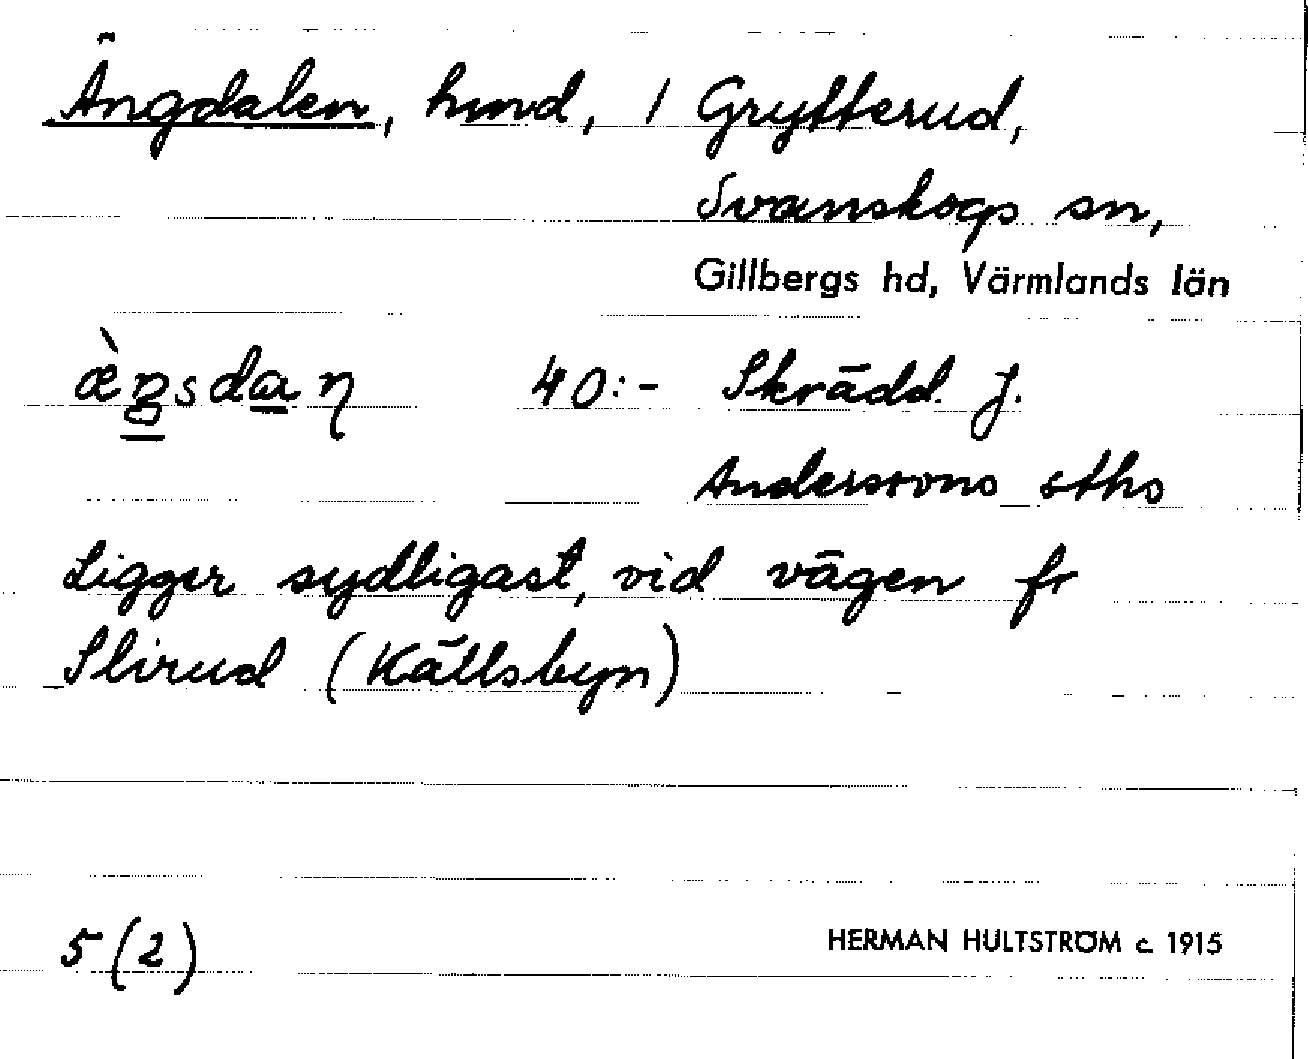 Ängdalen, hmd, 1 Grytterud,
Svanskogs sn,
Gillbergs hd, Värmlands län
40:- Skrädd. J.
Anderssons sths
Ligger sydligast, vid vägen fr
Slirud (Källsbyn)
5 (2) HERMAN HULTSTRÖM c. 1915